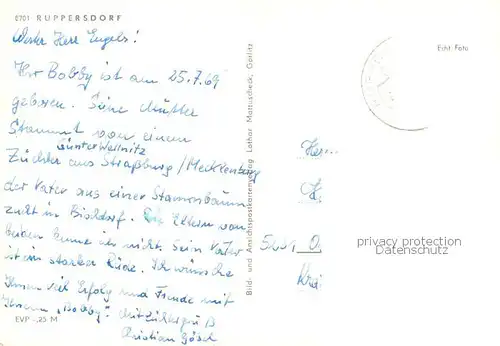 8701 RUPPERSDORF
Werter Herr Engels!
Ihr Bobby ist am 25.7.69
geboren. Seine Mutter
Stammt von einem
Günter Wernitz
Züchter aus Straßburg/Mecklenburg
der Vater aus einer Stammbaum
zucht in Bisdorf. Die Eltern von
beiden kenne ich nicht. Sein Vater
ist ein starker Rüde. Ich wünsche
Ihnen viel Erfolg und Freude mit
Ihrem „Bobby". Mit Züchtergruß
Christian Gösch
EVP -,25 M
Bild- und Ansichtspostkartenverlag Lothar Mattuscheck, Görlitz
Echt Foto
Herrn
privacy protection
Datenschutz
Krei